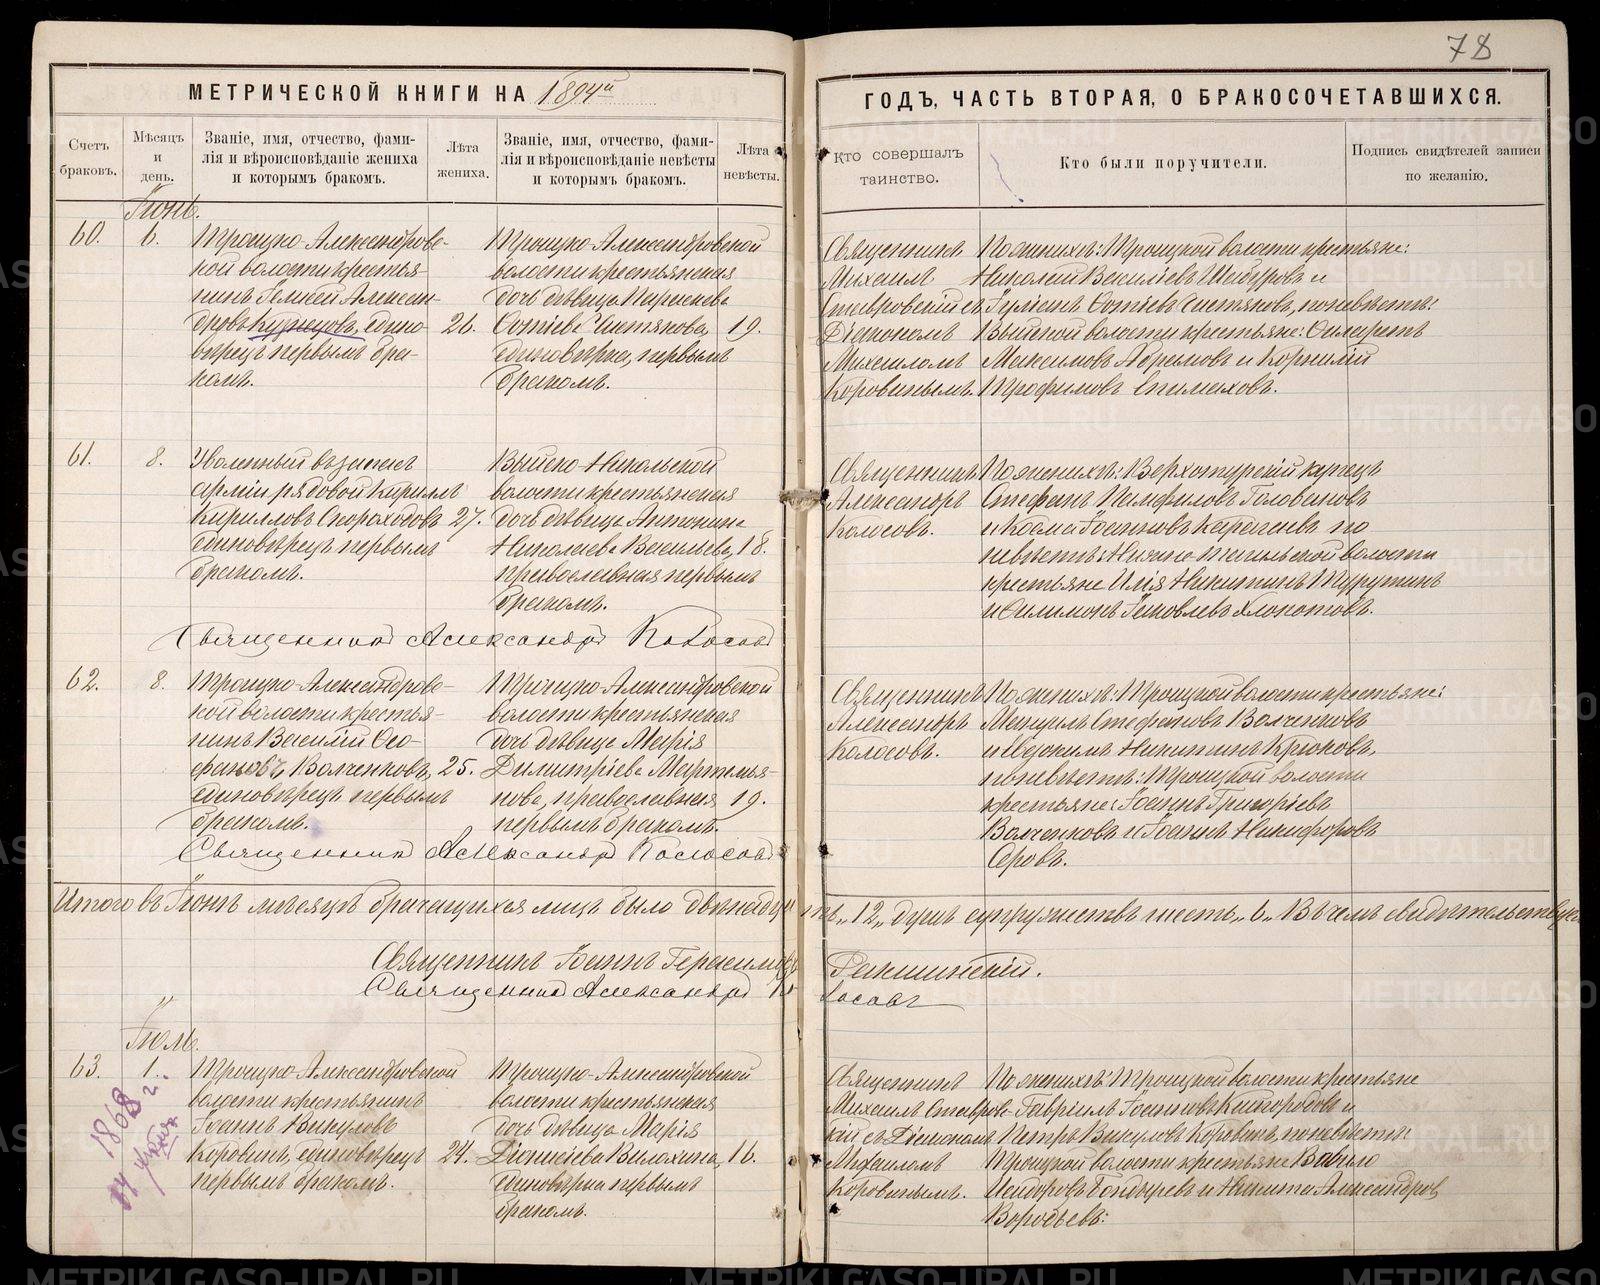 78
МЕТРИЧЕСКОЙ КНИГИ НА 1894й
ГОДЪ, ЧАСТЬ ВТОРАЯ, О БРАКОСОЧЕТАВШИХСЯ.
Счетъ браковъ.
Мѣсяцъ и день.
Званіе, имя, отчество, фами-
лія и вѣроисповѣданіе жениха
и которымъ бракомъ.
Лѣта жениха.
Званіе, имя, отчество, фами-
лія и вѣроисповѣданіе невѣсты
и которымъ бракомъ.
Лѣта невѣсты.
Кто совершалъ
таинство.
Кто были поручители.
Подпись свидѣтелей записи
по желанію.
Іюнь.
60.
6.
Троицко-Александровс-
кой волости крестья-
нинъ Алексан-
дровъ Кузнецовъ, едино-
вѣрецъ первымъ бра-
комъ.
26.
Троицко-Александровской
волости крестьянская
дочь дѣвица Параскева
Чистякова,
единовѣрка, первымъ
бракомъ.
19.
Священникъ
Михаилъ
Ставровскій съ
Діакономъ
Михаиломъ
Коровинымъ.
По женихѣ: Троицкой волости крестьяне:
Николай Васильевъ и
Чистяковъ, по невѣстѣ:
Выйской волости крестьяне:
Максимовъ Абрамовъ и Корнилій
Трофимовъ
61.
8.
Уволенный въ запасъ
арміи рядовой Кириллъ
Кирилловъ Скороходовъ
единовѣрецъ первымъ
бракомъ.
27.
Выйско-Никольской
волости крестьянская
дочь дѣвица Антонина
Николаева Васильева,
православная первымъ
бракомъ.
18.
Священникъ
Александръ
Колосовъ.
По женихѣ: Верхотурскій купецъ
Стефанъ Памфиловъ Головановъ
и Косма Іоанновъ по
невѣстѣ: Нижне-Тагильской волости
крестьяне Илія Никитинъ
и Филимонъ Іаковлевъ Хлопотовъ.
Священникъ Александръ Колосовъ
62.
8.
Троицко-Александровс-
кой волости крестья-
нинъ Василій Фео-
фановъ, Волченковъ,
единовѣрецъ первымъ
бракомъ.
25.
Троицко-Александровской
волости крестьянская
дочь дѣвица Марія
Димитріева Мартемья-
нова, православная
первымъ бракомъ.
19.
Священникъ
Александръ
Колосовъ.
По женихѣ: Троицкой волости крестьяне:
Мануилъ Стефановъ Волченковъ
и Никитинъ Крюковъ,
по невѣстѣ: Троицкой волости
крестьяне: Іоаннъ Григоріевъ
Волченковъ и Іоаннъ Никифоровъ
Серовъ.
Священникъ Александръ Колосовъ
Итого въ Іюнѣ мѣсяцѣ брачащихся лицъ было двѣнадцать „12„ душъ супружествъ шесть „6„ Въ чемъ свидѣтельствуе
Священникъ Іоаннъ Герасимовъ
Священникъ Александръ Колосовъ
Іюль.
63.
1.
Троицко-Александровской
волости крестьянинъ
Іоаннъ Викуловъ
Коровинъ, единовѣрецъ
первымъ бракомъ.
24.
Троицко-Александровской
волости крестьянская
дочь дѣвица Марія
Діонисіева Вилохина,
единовѣрка первымъ
бракомъ.
16.
Священникъ
Михаилъ Ставровс-
кій съ Діакономъ
Михаиломъ
Коровинымъ.
По женихѣ: Троицкой волости крестьяне
Гавріилъ Іоанновъ и
Петръ Викуловъ Коровинъ, по невѣстѣ:
Троицкой волости крестьяне Вавило
Исидоровъ Бондыревъ и Никита Александров
Воробьевъ:
1868 г.